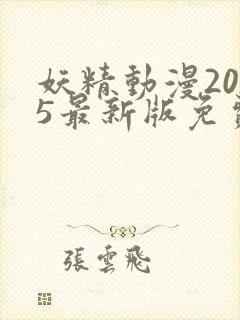 妖精動漫20
5最新版免費
張雲飛